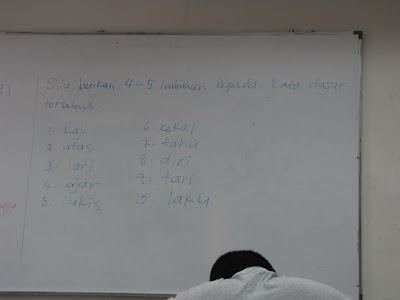 Sila berikan 4-5 Imbuhan kepada kata dasar
tersebut.
1. kaji
2. atas
3. lari
4. ajar
5. lukis
6. kekal
7. tahu
8. diri
9. tari
10. laku